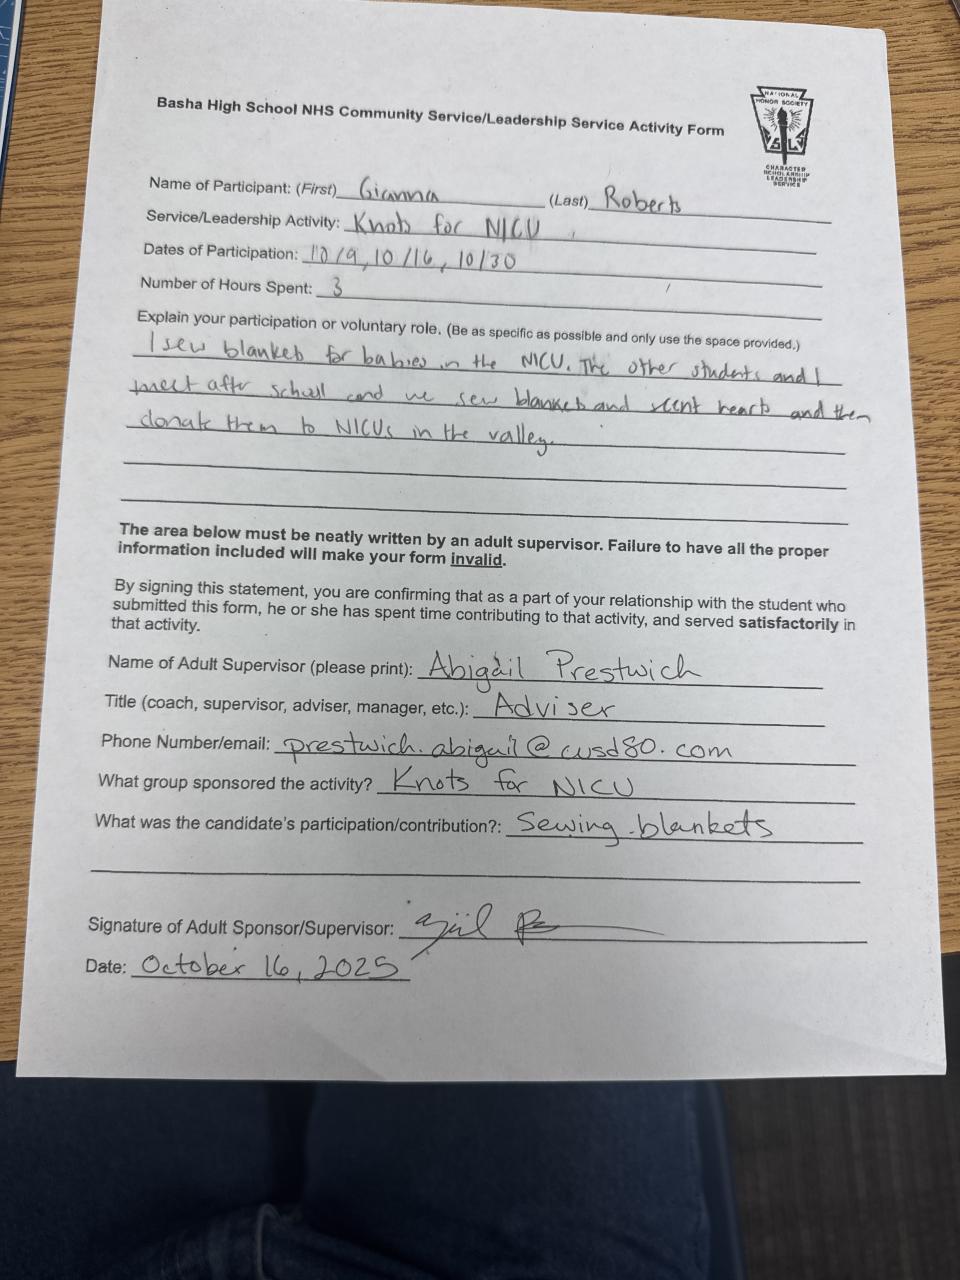 Basha High School NHS Community Service/Leadership Service Activity Form
NATIONAL
HONOR SOCIETY
CHARACTER
SCHOLARSHIP
LEADERSHIP
SERVICE
Name of Participant: (First) Gianna (Last) Roberts
Service/Leadership Activity: Knots for NICU
Dates of Participation: 10/9, 10/16, 10/30
Number of Hours Spent: 3
Explain your participation or voluntary role. (Be as specific as possible and only use the space provided.)
I sew blankets for babies in the NICU. The other students and I
meet after school and we sew blankets and scent hearts and then
donate them to NICUs in the valley.
The area below must be neatly written by an adult supervisor. Failure to have all the proper
information included will make your form invalid.
By signing this statement, you are confirming that as a part of your relationship with the student who
submitted this form, he or she has spent time contributing to that activity, and served satisfactorily in
that activity.
Name of Adult Supervisor (please print): Abigail Prestwich
Title (coach, supervisor, adviser, manager, etc.): Adviser
Phone Number/email: prestwich.abigail@cusd80.com
What group sponsored the activity? Knots for NICU
What was the candidate's participation/contribution?: Sewing blankets
Signature of Adult Sponsor/Supervisor:
Date: October 16, 2025